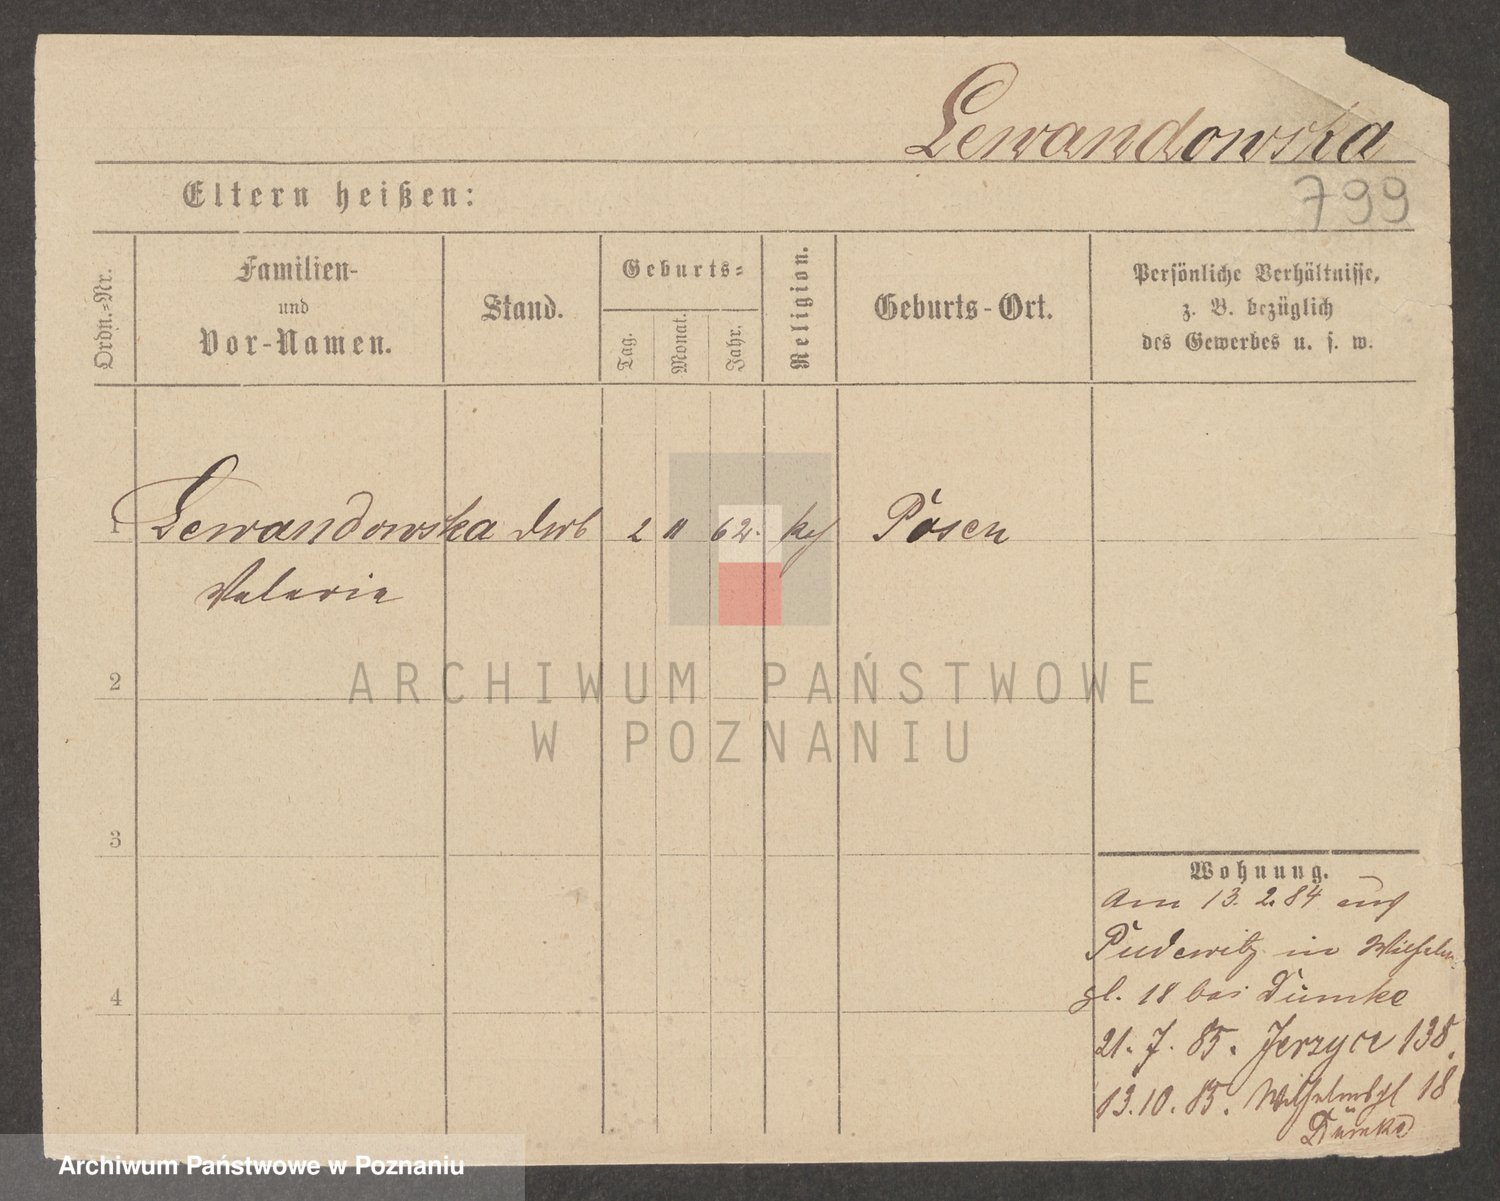 Lewandowska
Eltern heißen:
799
Ordn.-Nr.
Familien-
und
Vor-Namen.
Stand.
Geburts-
Tag.
Monat.
Jahr.
Religion.
Geburts-Ort.
Persönliche Verhältnisse,
z. B. bezüglich
des Gewerbes u. s. w.
1 Lewandowska 2 11 62. Posen
Valeria
2
ARCHIWUM PAŃSTWOWE
W POZNANIU
3
4
Wohnung.
am 13. 2. 84 aus
Pudewitz in Wilhelm
pl. 18 bei Dümke
21. 7. 85. Jerzyce 138.
13. 10. 85. Wilhelmspl 18
Dümke
Archiwum Państwowe w Poznaniu